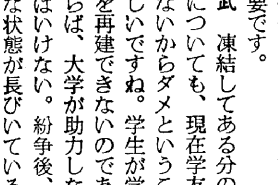 要です。
武　凍結してある分の
についても、現在学友
ないからダメというこ
しいですね。学生が学
を再建できないのであ
らば、大学が助力しな
はいけない。紛争後、
な状態が長びいている